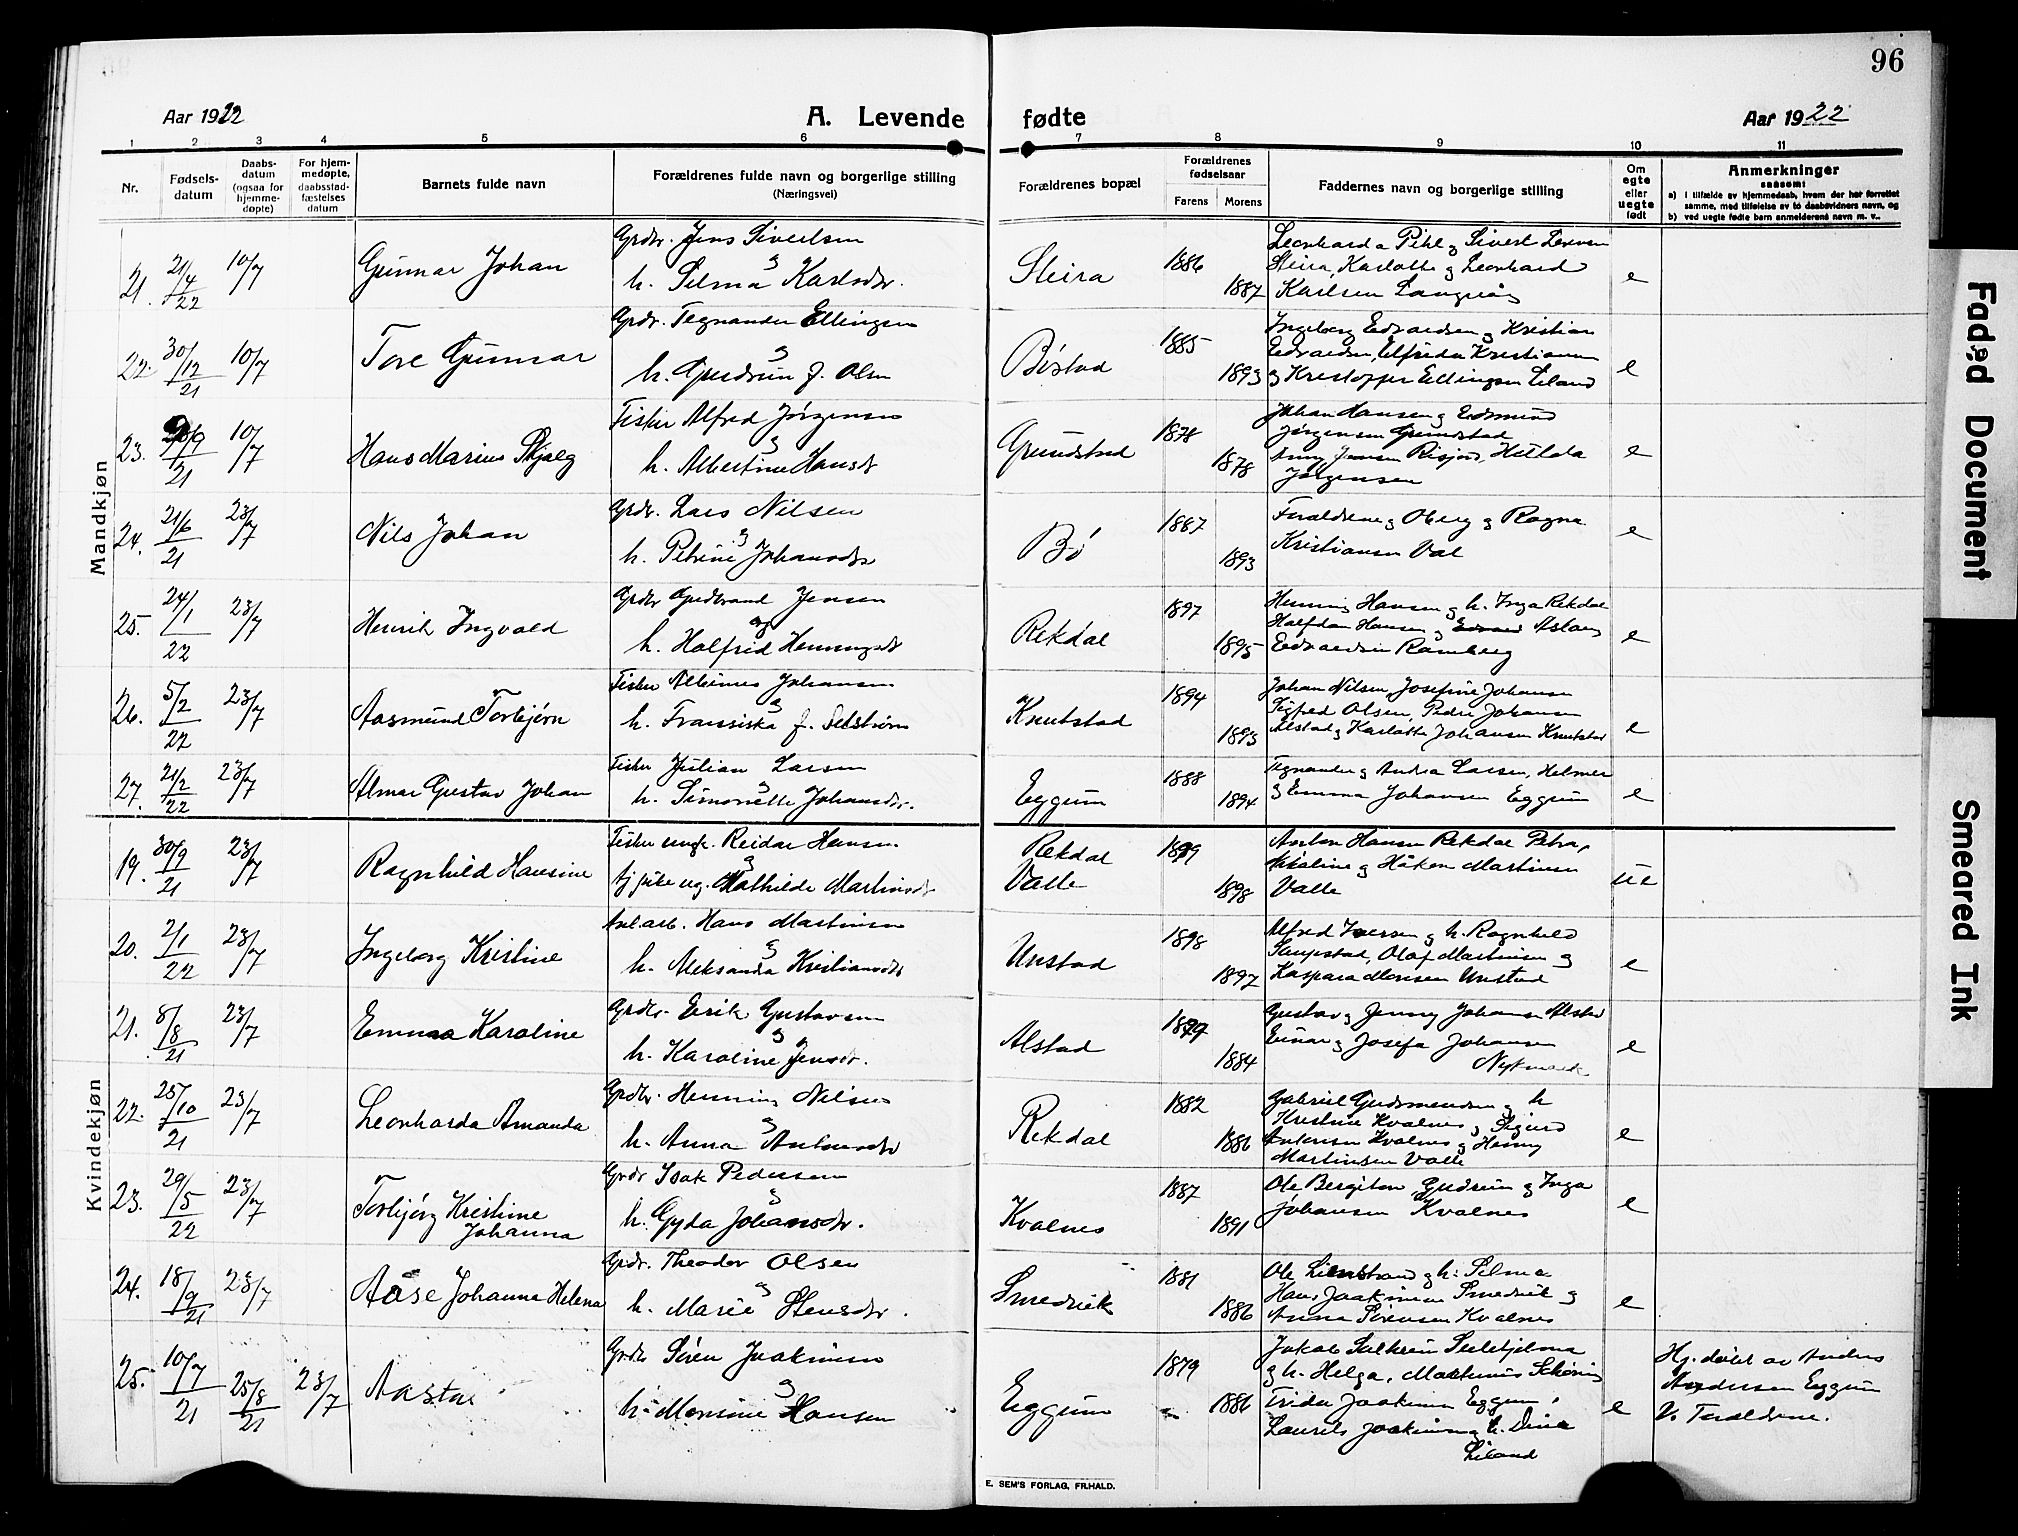 96
Aar 1922
A. Levende fødte
Aar 1922
1 2 3 4 5 6 7 8 9 10 11
Nr.
Fødsels-
datum
Daabs-
datum
(ogsaa for
hjemme-
døpte)
For hjem-
medøpte,
daabsstad-
fæstelses
datum
Barnets fulde navn
Forældrenes fulde navn og borgerlige stilling
(Næringsvei)
Forældrenes bopæl
Forældrenes
fødselsaar
Farens
Morens
Faddernes navn og borgerlige stilling
Om
egte
eller
uegte
født
Anmerkninger
saasom:
a) i tilfælde av hjemmedaab, hvem der har forrettet
samme, med tilføielse av to daabsvidners navn, og
b) ved uegte fødte barn anmelderens navn m. v..
Mandkjøn
21. 21/4 22 10/7 Gunnar Johan
Grdbr. Jens Sivertsen
og
h. Selma Karlsdtr.
Steira 1886 1887
Leonharda Pihl og Sivert Iversen
Steira, Karlotte og Leonhard
Karlsen
e
22. 30/12 21 10/7 Tore Gunnar
Grdr. Tegnander Ellingsen
og
h. Gudrun f. Olsen
Bøstad 1885 1893
Ingeborg Edvardsen og Kristian
Edvardsen, Elfrida Kristiansen
og Kristoffer Ellingsen Leland
e
23. 21 10/7 Hans Marius Skjalg
Fisker Alfred Jørgensen
og
h. Albertine Hansdtr
Grundstad 1878 1878
Johan Hansen og Edmund
Jørgensen Grundstad
Jensen Risjord, Hulda
Jørgensen
e
24. 21/6 21 23/7 Nils Johan
Grdr. Lars Nilsen
og
h. Petrine Johansdtr
Bø 1887 1893
Forældrene og Oberg og Ragna
Kristiansen Val
e
25. 24/1 22 23/7 Henrik Ingvald
Grdbr Gudbrand Jensen
og
h. Halfrid Henningsdtr
Rekdal 1897 1895
Henning Hansen og h. Inga Rekdal
Halfdan Hansen og Aslaug
Edvardsen Ramberg
e
26. 5/2 22 23/7 Aasmund Torbjørn
Fisker Albinus Johansen
og
h. Fransiska f. Selstrøm
Knutstad 1894 1893
Johan Nilsen, Josefine Johansen
Sigfred Olsen, Peder Johansen
Alstad og Karlotte Johansen Knutstad
e
27. 21/2 22 23/7 Almar Gustav Johan
Fisker Julian Larsen
og
h. Simonette Johansdtr.
Eggum 1888 1894
Tegnander og Andrea Larsen, Helmer
og Emma Johansen Eggum
e
Kvindekjøn
19. 30/9 21 23/7 Ragnhild Hansine
Fisker ungk. Reidar Hansen
og
tj. pike ug. Mathilde Martinsdtr
Rekdal
Valle 1899 1898
Anton Hansen Rekdal Petra,
Nikoline og Håkon Martinsen
Valle
ue
20. 2/1 22 23/7 Ingeborg Kristine
Anl.arb. Hans Martinsen
og
h. Aleksanda Kristiansdtr
Unstad 1898 1897
Alfred Iversen og h. Ragnhild
Saupstad, Olaf Martinsen og
Kaspara Monsen Unstad
e
21. 8/8 21 23/7 Emma Karoline
Grdr. Erik Gustavsen
og
h. Karoline Jensdtr.
Alstad 1879 1884
Gustav og Jenny Johansen Alstad
Einar og Josefa Johansen
Nykmark
e
22. 25/10 21 23/7 Leonharda Amanda
Grdbr. Henning Nilsen
og
h. Anna Antonsdtr
Rekdal 1882 1886
Gabriel Gudmundsen og h
Kristine Kvalnes og Sigurd
Antonsen Kvalnes og Henny
Martinsen Valle
e
23. 29/5 22 23/7 Torbjørg Kristine
Johanna
Grdr Isak Pedersen
og
h. Gyda Johansdtr.
Kvalnes 1887 1891
Ole Bergiton, Gudrun og Inga
Johansen Kvalnes
e
24. 18/9 21 23/7 Aase Johanna Helena
Grdr. Theodor Olsen
og
h. Marie Stensdtr.
Smedvik 1881 1886
Ole Lienstrand og h. Selma
Hans Joakimsen Smedvik og
Anna Sørensen Kvalnes
e
25. 10/7 21 25/8 21 23/7 Aasta
Grdr Søren Joakimsen
og
h. Monsine Hansen
Eggum 1879 1886
Jakob
og h. Helga, Martinus
Frida Joakimsen Eggum,
Laurits Joakimsen og h. Dina
Liland
e
Hj. døbt av Anders
Andersen Eggum
V. Foreldrene.
E. SEM'S FORLAG, FR.HALD.
Faded Document
Smeared Ink